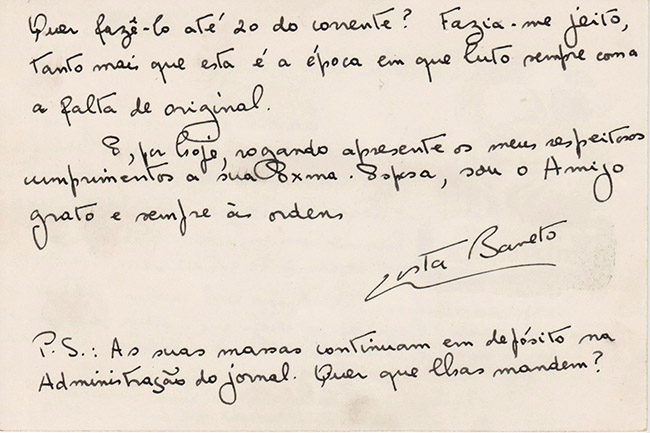 Quer fazê-lo até 20 do corrente? Fazia-me jeito,
tanto mais que esta é a época em que luto sempre com a
a falta de original.
E, por hoje, rogando apresente os meus respeitosos
cumprimentos a sua Exma. Esposa, sou o Amigo
grato e sempre às ordens
Costa Barreto
P.S.: As suas massas continuam em depósito na
Administração do jornal. Quer que lhas mandem?